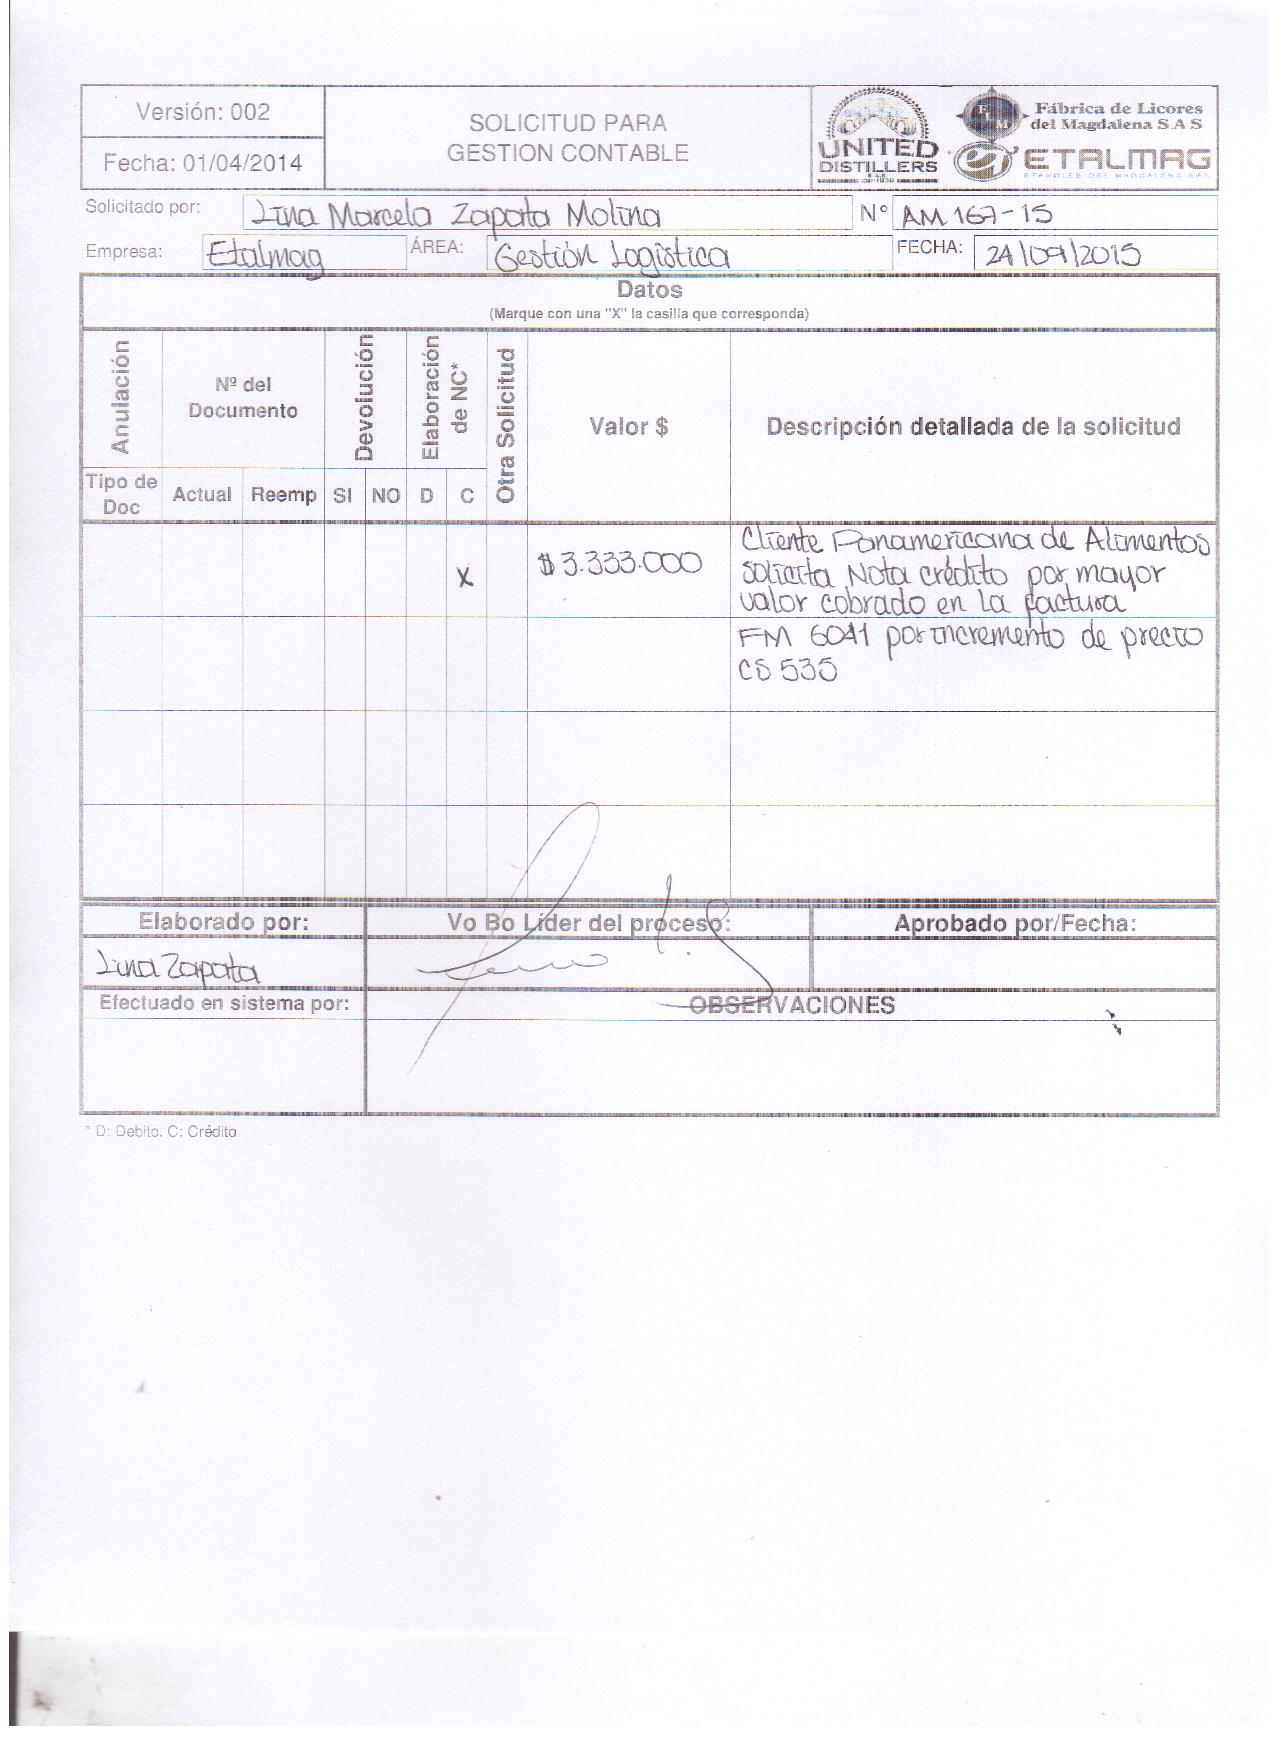 Versión: 002
Fecha: 01/04/2014
SOLICITUD PARA
GESTION CONTABLE
UNITED
DISTILLERS
FLM
Fábrica de Licores
del Magdalena S A S
ETALMAG
ETANOLES DEL MAGDALENA SAS
Solicitado por: Lina Marcela Zapata Molina Nº AM 167-15
Empresa: Etalmag ÁREA: Gestión Logística FECHA: 24/09/2015
Datos
(Marque con una "X" la casilla que corresponda)
Anulación
Nº del
Documento
Devolución
Elaboración
de NC*
Otra Solicitud
Valor $
Descripción detallada de la solicitud
Tipo de
Doc
Actual Reemp SI NO D C
X $3.333.000
Cliente Panamericana de Alimentos
solicita Nota crédito por mayor
valor cobrado en la factura
FM 6041 por incremento de precio
CS 535
Elaborado por: Vo Bo Líder del proceso: Aprobado por/Fecha:
Lina Zapata
Efectuado en sistema por: OBSERVACIONES
* D: Debito. C: Crédito